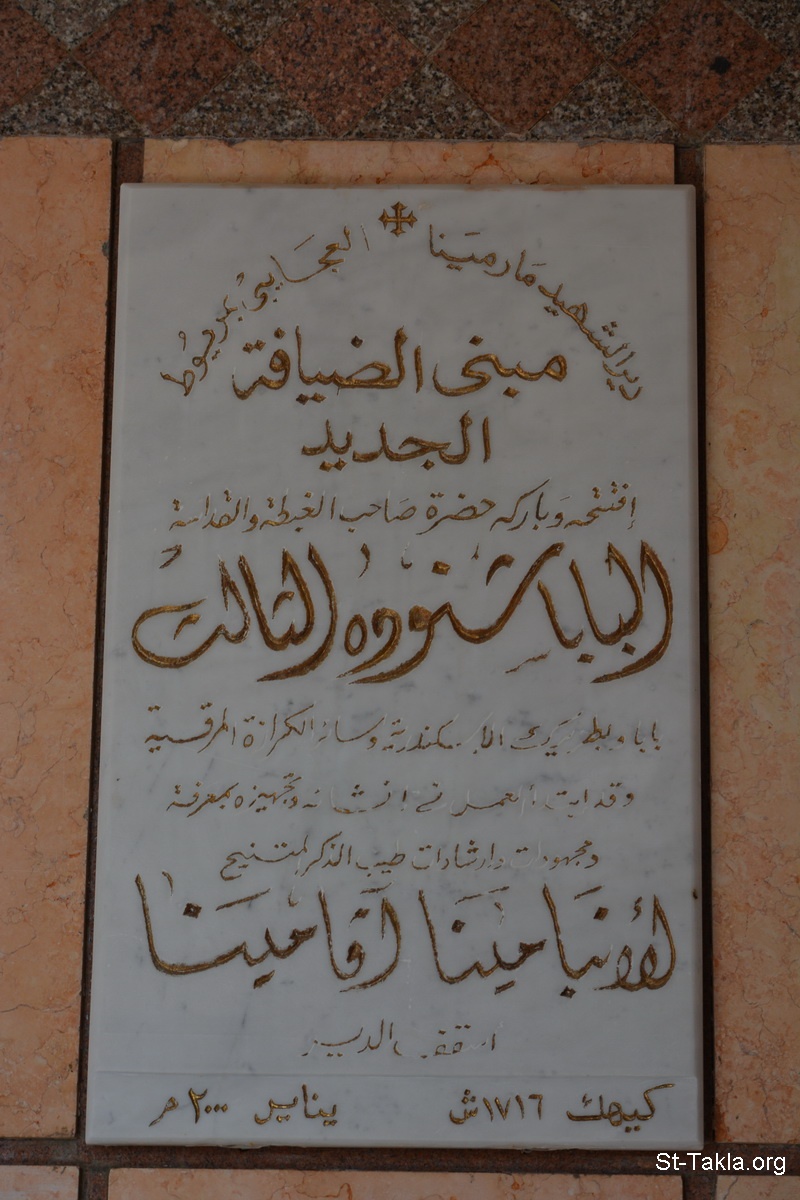 دير الشهيد مَارمَينا العجَايبى بمريُوط
مبنى الضيافة
الجديد
إفتتحه وَباركه حضرة صَاحب الغبطة والقداسة
البابا شنوده الثالث
بابا وبطريرك الإسكندرية وسائر الكرازة المرقسية
وقد ابتدأ العمل فى إنشائه وتجهيزه بمعرفة
ومجهودات وارشادات طيب الذكر المتنيح
الأنبَا مينَا آڤا مينَا
أسقف الدير
كيهك ١٧١٦ش يناير ٢٠٠٠م
St-Takla.org